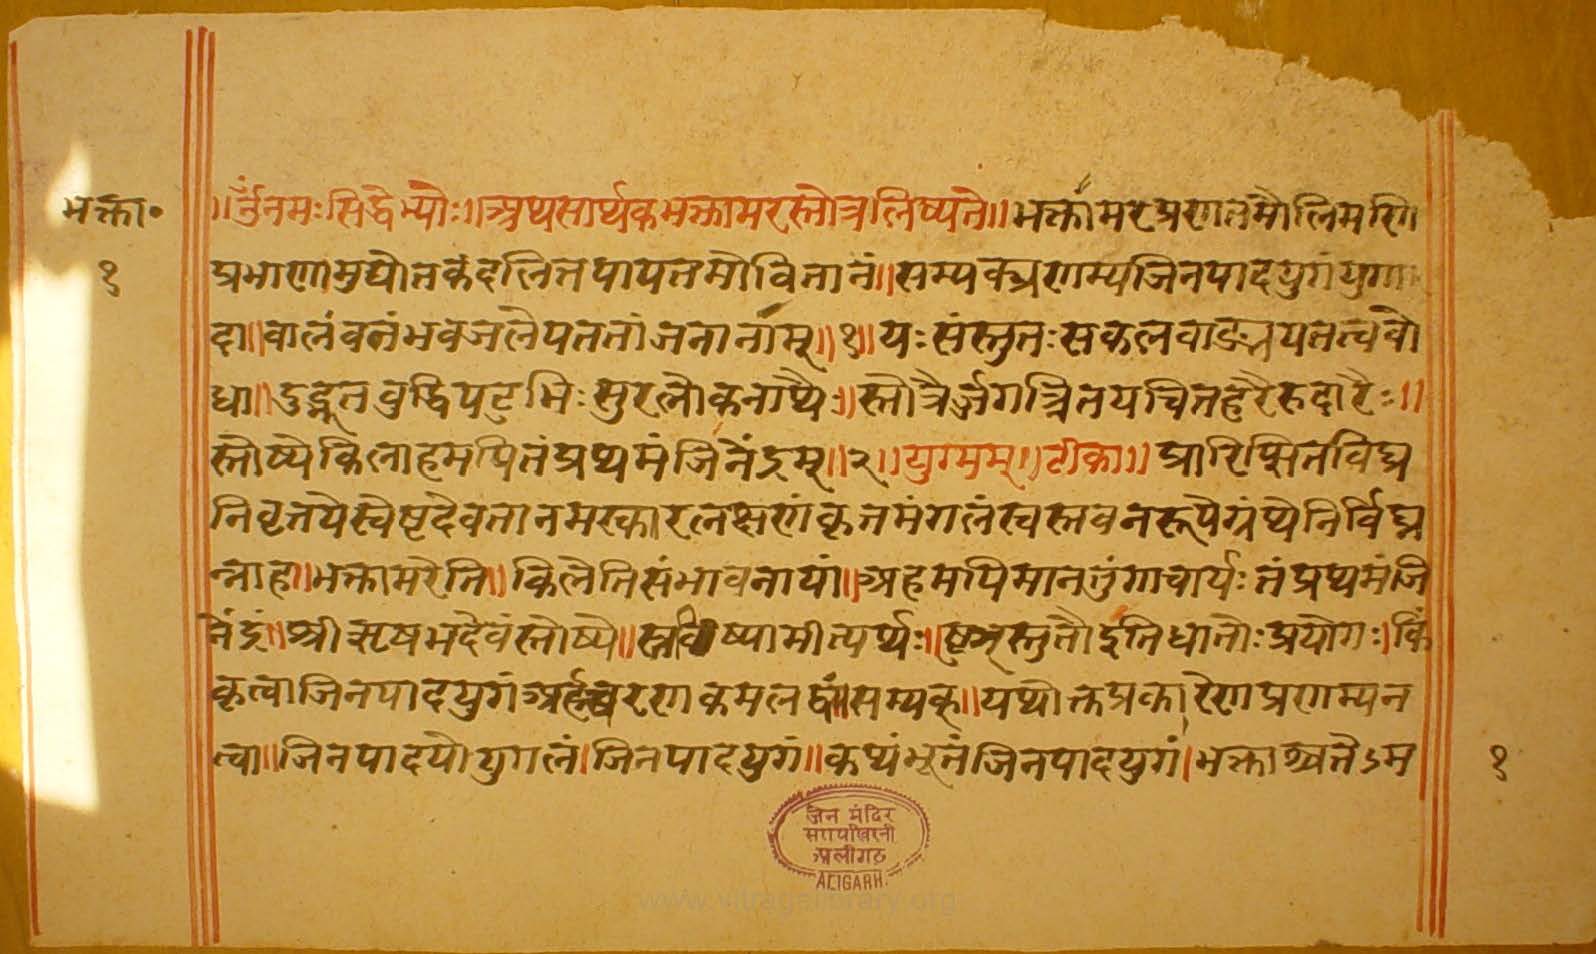 भक्ता॰
१
॥ॐनमःसिद्धेभ्योः॥अथसार्थकभक्तामरस्तोत्रलिष्यते॥भक्तामरप्रणतमौलिमणि
प्रभाणामुद्योतकंदलितपापतमोवितानं॥सम्यक्प्रणम्यजिनपादयुगंयुगा
दा॥वालंवनंभवजलेपततांजनानाम्॥१॥यःसंस्तुतःसकलवाङ्मयतत्ववो
धा॥दुद्भूतवुद्धिपटुभिःसुरलोकनाथैः॥स्तोत्रैर्ज्जगत्रितयचितहरैरुदारैः॥
स्तोष्येकिलाहमपितंप्रथमंजिनेंद्रम्॥२॥युग्मम्॥टीका॥प्रारिप्सितविघ्न
निवृतयेस्वेष्टदेवतानमस्कारलक्षणंकृतमंगलंस्वस्तवनरूपेग्रंथेनिर्विघ्न
न्नाह॥भक्तामरेति॥किलेतिसंभावनायां॥अहमपिमानतुंगाचार्यःतंप्रथमंजि
नेंद्रं॥श्रीऋषभदेवंस्तोष्ये॥स्तविष्यामीत्यर्थः॥ष्टुञ्स्तुतौइतिधातोःप्रयोगः॥किं
कृत्वाजिनपादयुगंअर्हच्चरणकमलद्वं॥सम्यक्॥यथोक्तप्रकारेणप्रणम्यन
त्वा॥जिनपादयोयुगलं।जिनपादयुगं॥कथंभूतंजिनपादयुगं।भक्ताश्चतेऽम
१
जैन मंदिर
अलीगढ़
ALIGARH.
www.vitragelibrary.org